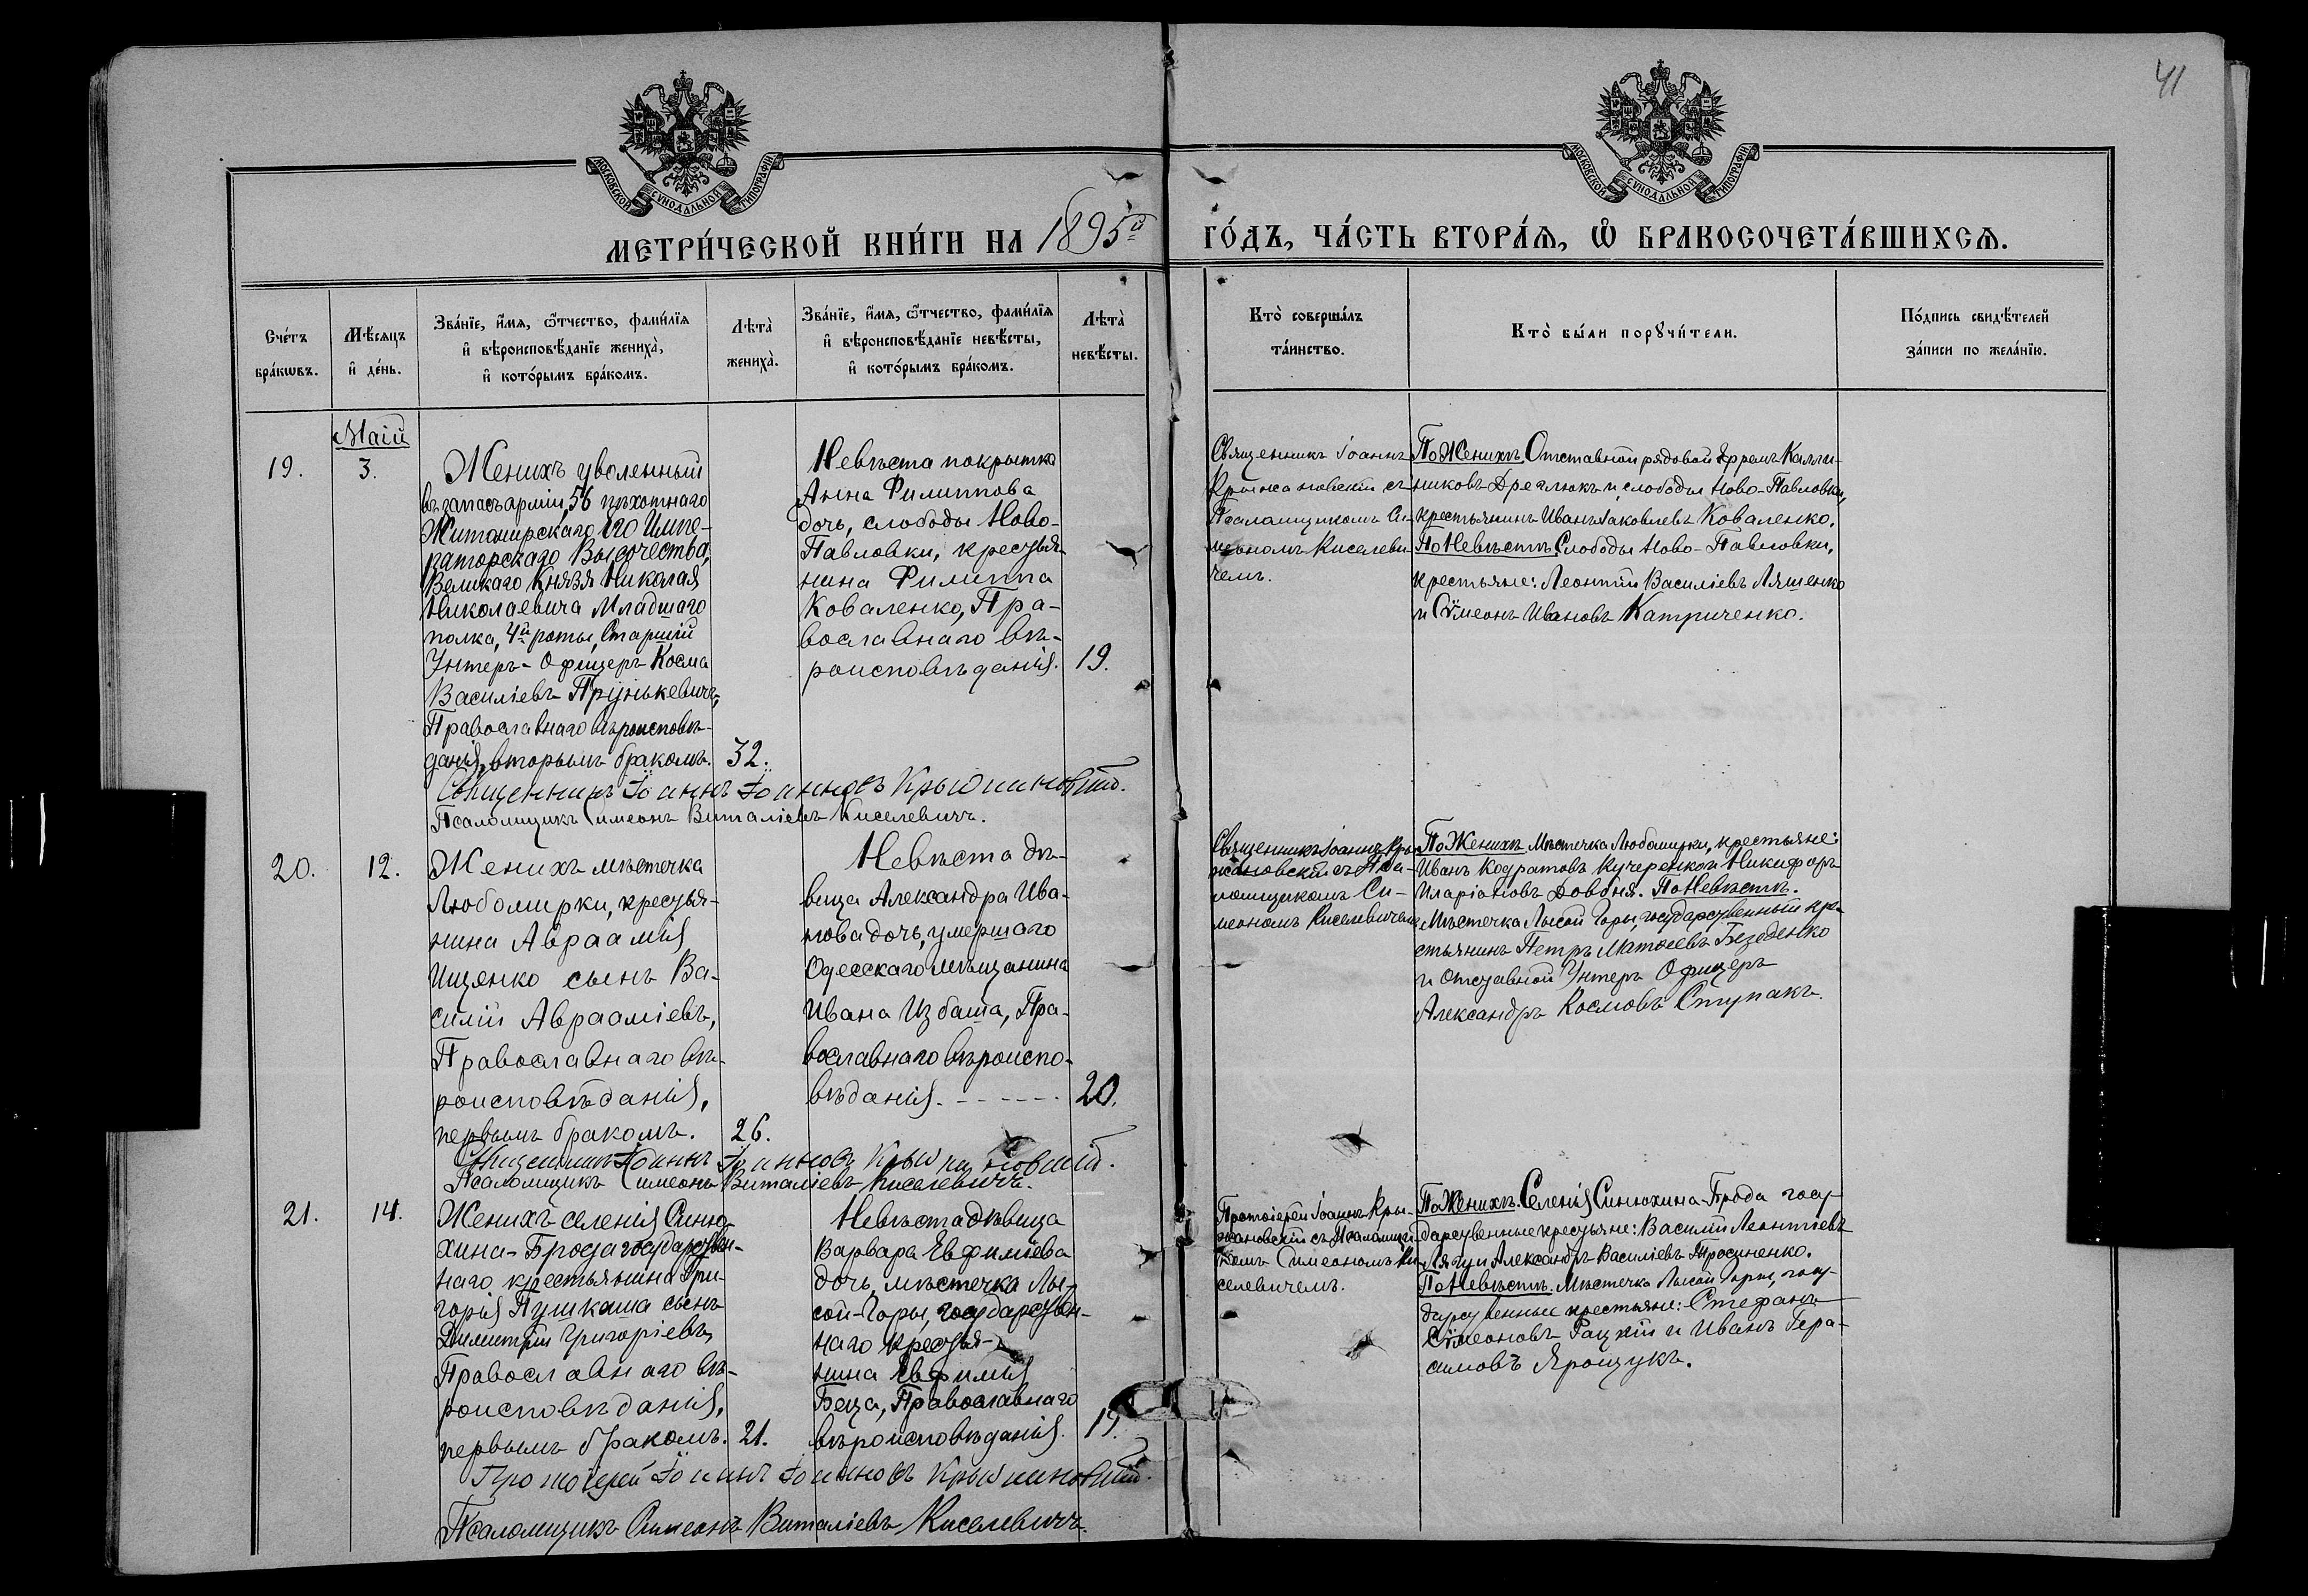 41
МОСКОВСКОЙ СУНОДАЛЬНОЙ ТИПОГРАФІИ
МОСКОВСКОЙ СУНОДАЛЬНОЙ ТИПОГРАФІИ
МЕТРИ́ЧЕСКОЙ КНИ́ГИ НА 1895й
ГО́ДЪ, ЧА́СТЬ ВТОРА́Ѧ, Ѽ БРАКОСОЧЕТА́ВШИХСѦ.
Сче́тъ
бра́кѡвъ.
Мѣ́сѧцъ
и҆ де́нь.
Зва́нїе, и҆́мѧ, ѻ҆́тчество, фами́лїѧ
и҆ вѣроисповѣ́данїе жениха̀,
и҆ кото́рымъ бра́комъ.
Лѣта̀
жениха̀.
Зва́нїе, и҆́мѧ, ѻ҆́тчество, фами́лїѧ
и҆ вѣроисповѣ́данїе невѣ́сты,
и҆ кото́рымъ бра́комъ.
Лѣта̀
невѣ́сты.
Кто̀ соверша́лъ
та́инство.
Кто̀ бы́ли порꙋчи́тели.
По́дпись свидѣ́телей
за́писи по жела́нїю.
Маій
19.
3.
Женихъ уволенный
въ запасъ арміи, 56 пѣхотнаго
Житомирскаго Его Импе-
раторскаго Высочества,
Великаго Князя Николая
Николаевича Младшаго
полка, 4й роты, Старшій
Унтеръ-Офицеръ Косма
Василіевъ
Православнаго вѣроисповѣ-
данія, вторымъ бракомъ.
32.
Невѣста покрытка
Анна Филиппова
дочь, слободы Ново-
Павловки, крестья-
нина Филиппа
Коваленко, Пра-
вославнаго вѣ-
роисповѣданія.
19.
Священникъ Іоаннъ
Крыжановскій съ
Псаломщикомъ Си-
меономъ Киселеви-
чемъ.
По Женихѣ. Отставной рядовой Ефремъ Калли-
никовъ и слободы Ново-Павловки,
крестьянинъ Иванъ Іаковлевъ Коваленко.
По Невѣстѣ. Слободы Ново-Павловки,
крестьяне: Леонтій Василіевъ Ляшенко
и Сѵмеонъ Ивановъ Катриченко.
Священникъ Іоаннъ Іоанновъ Крыжановскій.
Псаломщикъ Симеонъ Виталіевъ Киселевичъ.
20.
12.
Женихъ мѣстечка
Любомирки, крестья-
нина Авраамія
Ищенко сынъ Ва-
силій Авраамiевъ,
Православнаго вѣ-
роисповѣданія,
первымъ бракомъ.
26.
Невѣста дѣ-
вица Александра Ива-
нова дочь, умершаго
Одесскаго мѣщанина
Ивана Избаша, Пра-
вославнаго вѣроиспо-
вѣданія.
20.
Священникъ Іоаннъ Кры-
жановскій съ Пса-
ломщикомъ Си-
меономъ Киселевичемъ
По Женихѣ. Мѣстечка Любомирки, крестьяне:
Иванъ Кодратовъ Кучеренко и Никифоръ
Иларіоновъ Довбня. По Невѣстѣ.
Мѣстечка Лысой Горы, государственный кре-
стьянинъ Петръ Матѳеевъ
и Отставной Унтеръ Офицеръ
Александръ Космовъ Ступакъ.
Священникъ Іоаннъ Іоанновъ Крыжановскій.
Псаломщикъ Симеонъ Виталіевъ Киселевичъ.
21.
14.
Женихъ селенія Синю-
хина-Брода государствен-
наго крестьянина Гри-
горія Пушкаша сынъ
Димитрій Григоріевъ,
Православнаго вѣ-
роисповѣданія,
первымъ бракомъ.
21.
Невѣста дѣвица
Варвара Евфиміева
дочь, мѣстечка Лы-
сой-Горы, государствен-
наго крестья-
нина Евфимія
Беца, Православнаго
вѣроисповѣданія.
19.
Протоіерей Іоаннъ Кры-
жановскій съ Псаломщи-
комъ Симеономъ Ки-
селевичемъ.
По Женихѣ. Селенія Синюхина-Брода госу-
дарственные крестьяне: Василій Леонтіевъ
и Александръ Василіевъ Тросиненко.
По Невѣстѣ. Мѣстечка Лысой Горы, госу-
дарственные крестьяне: Стефанъ
Сѵмеоновъ Рацкій и Иванъ Гера-
симовъ Ярощукъ.
Протоіерей Іоаннъ Іоанновъ Крыжановскій
Псаломщикъ Симеонъ Виталіевъ Киселевичъ.